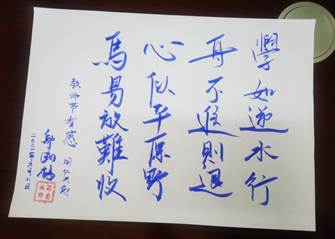 學如逆水行
舟不進則退
心似平原野
馬易放難收
教师节有感 同仁共勉
二〇二一年九月八日